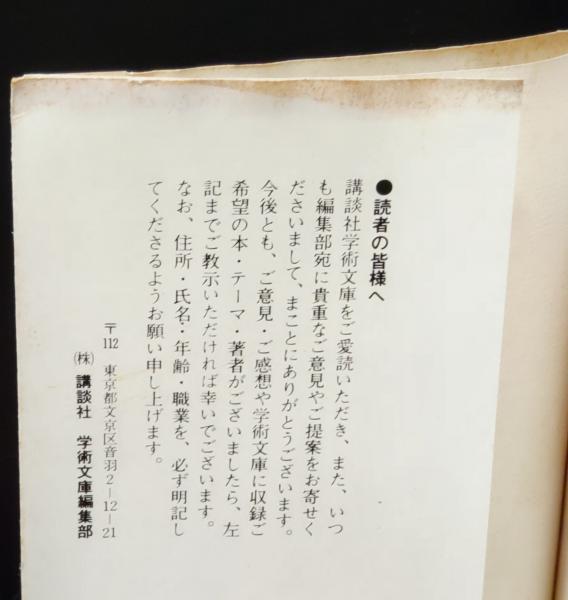 ●読者の皆様へ
講談社学術文庫をご愛読いただき、また、いつ
も編集部宛に貴重なご意見やご提案をお寄せく
ださいまして、まことにありがとうございます。
今後とも、ご意見・ご感想や学術文庫に収録ご
希望の本・テーマ・著者がございましたら、左
記までご教示いただければ幸いでございます。
なお、住所・氏名・年齢・職業を、必ず明記し
てくださるようお願い申し上げます。
〒112 東京都文京区音羽2―12―21
㈱ 講談社 学術文庫編集部